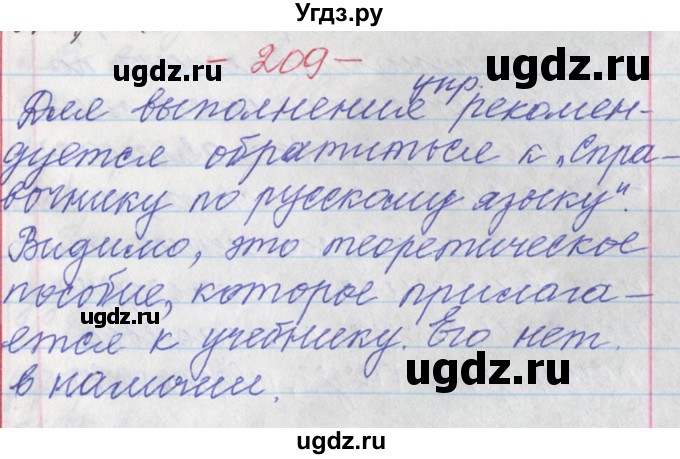 Угдз.ру
- 209 -
Для выполнения упр. рекомен-
дуется обратиться к „Спра-
вочнику по русскому языку".
Видимо, это теоретическое
пособие, которое прилага-
ется к учебнику. Его нет
в наличии.
ugdz.ru
ugdz.ru
ugdz.ru
ugdz.ru
ugdz.ru
ugdz.ru
ugdz.ru